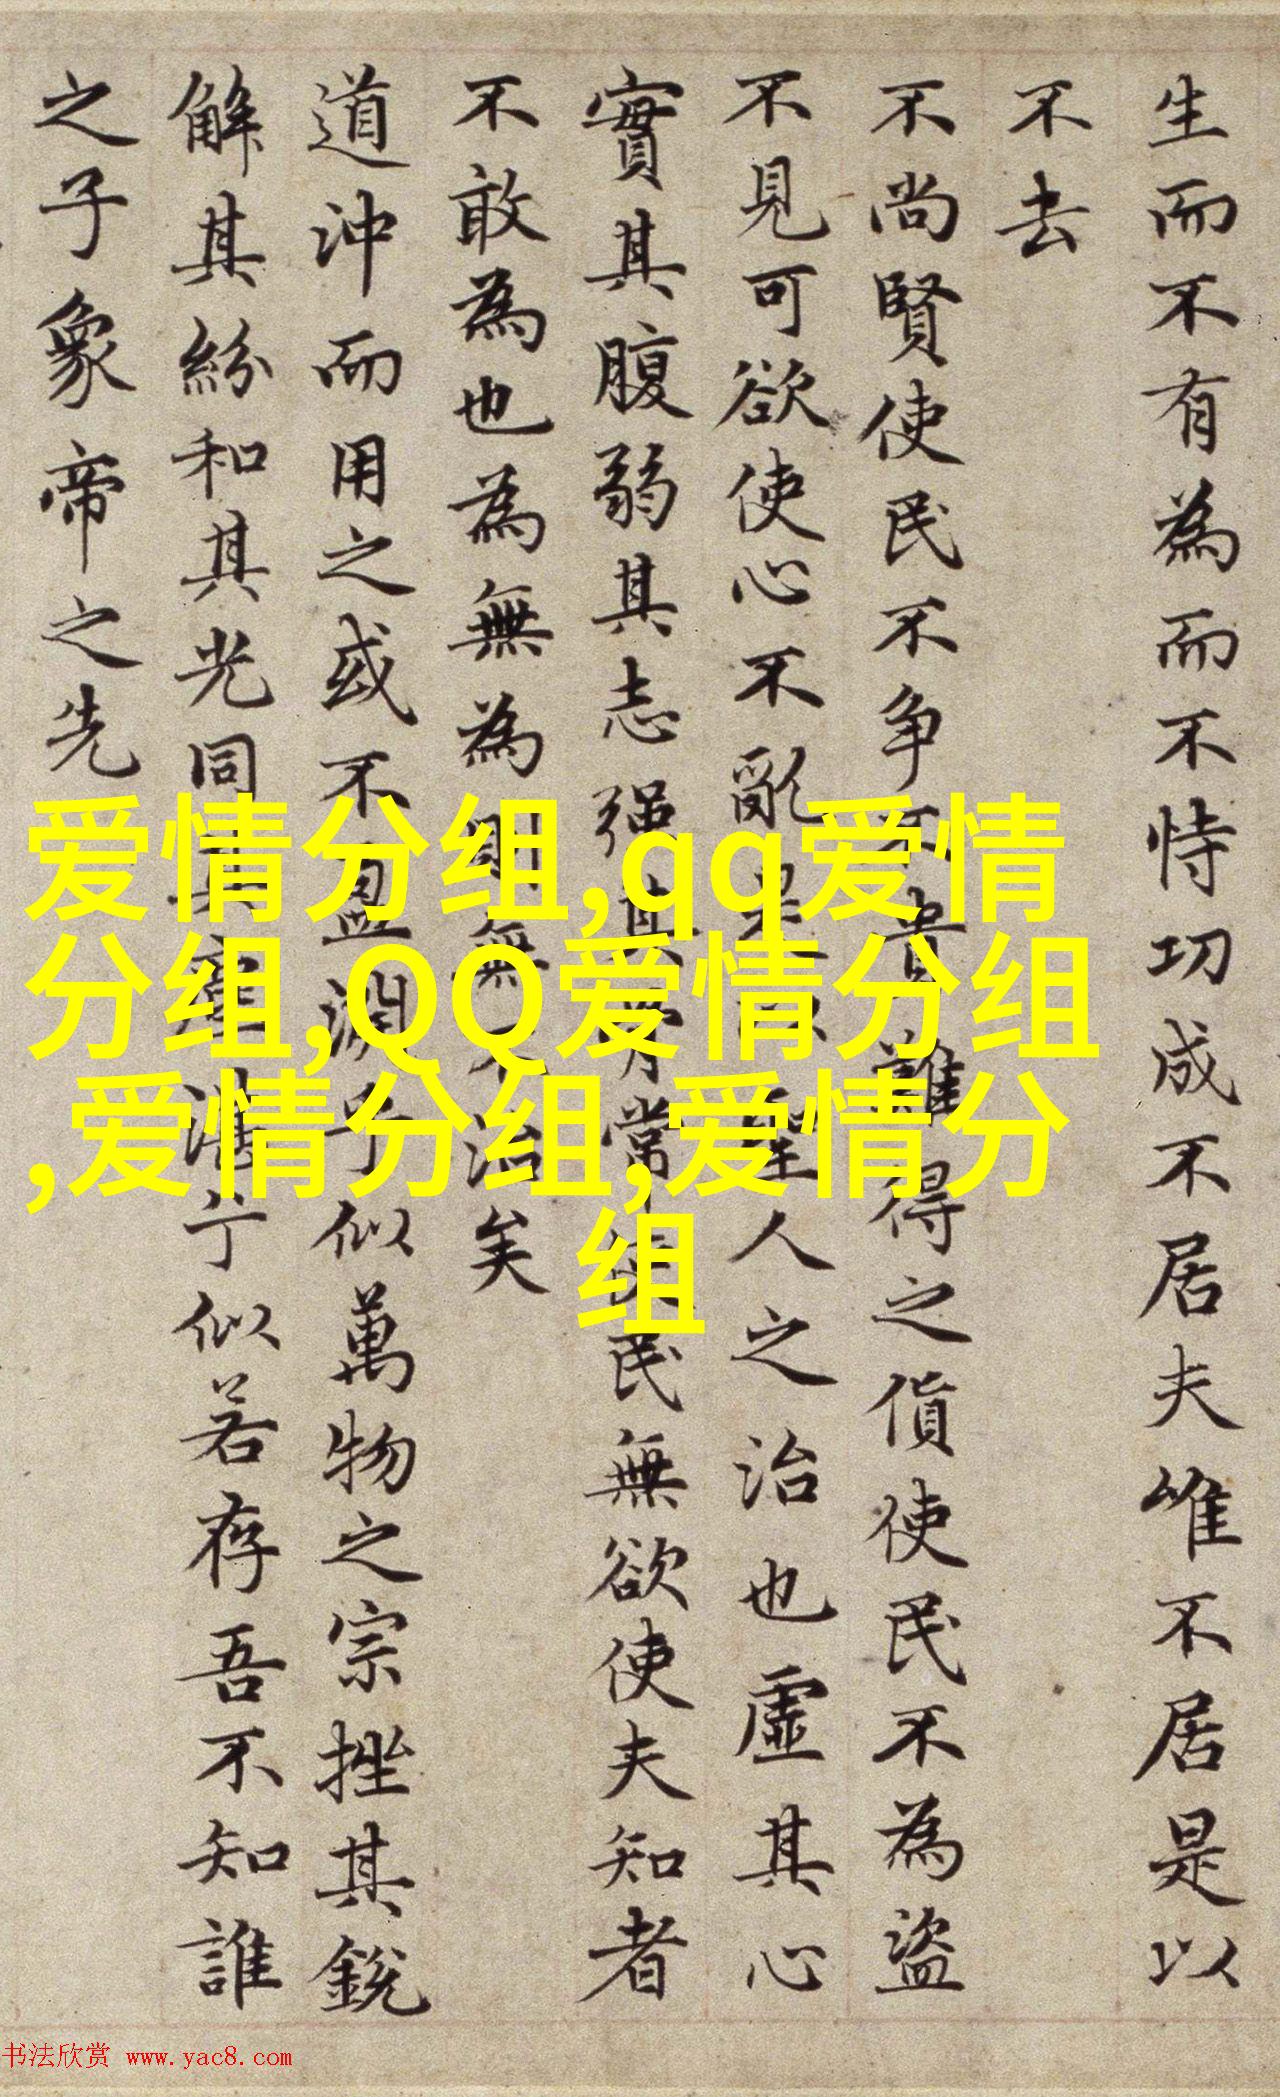 生而不有為而不恃功成不居夫唯不居是以
不去
不尚賢使民不争不貴難得之貨使民不為盜
不見可欲使心不亂是以聖人之治也虛其心
實其腹弱其志强其骨常使民無欲使夫知者
不敢為也為無為則無不治矣
道沖而用之或不盈淵乎似萬物之宗挫其銳
解其紛和其光同其塵湛兮似若存吾不知誰
之子象帝之先
爱情分组,qq爱情
分组,QQ爱情分组
,爱情分组,爱情分
组
书法欣赏 www.yac8.com